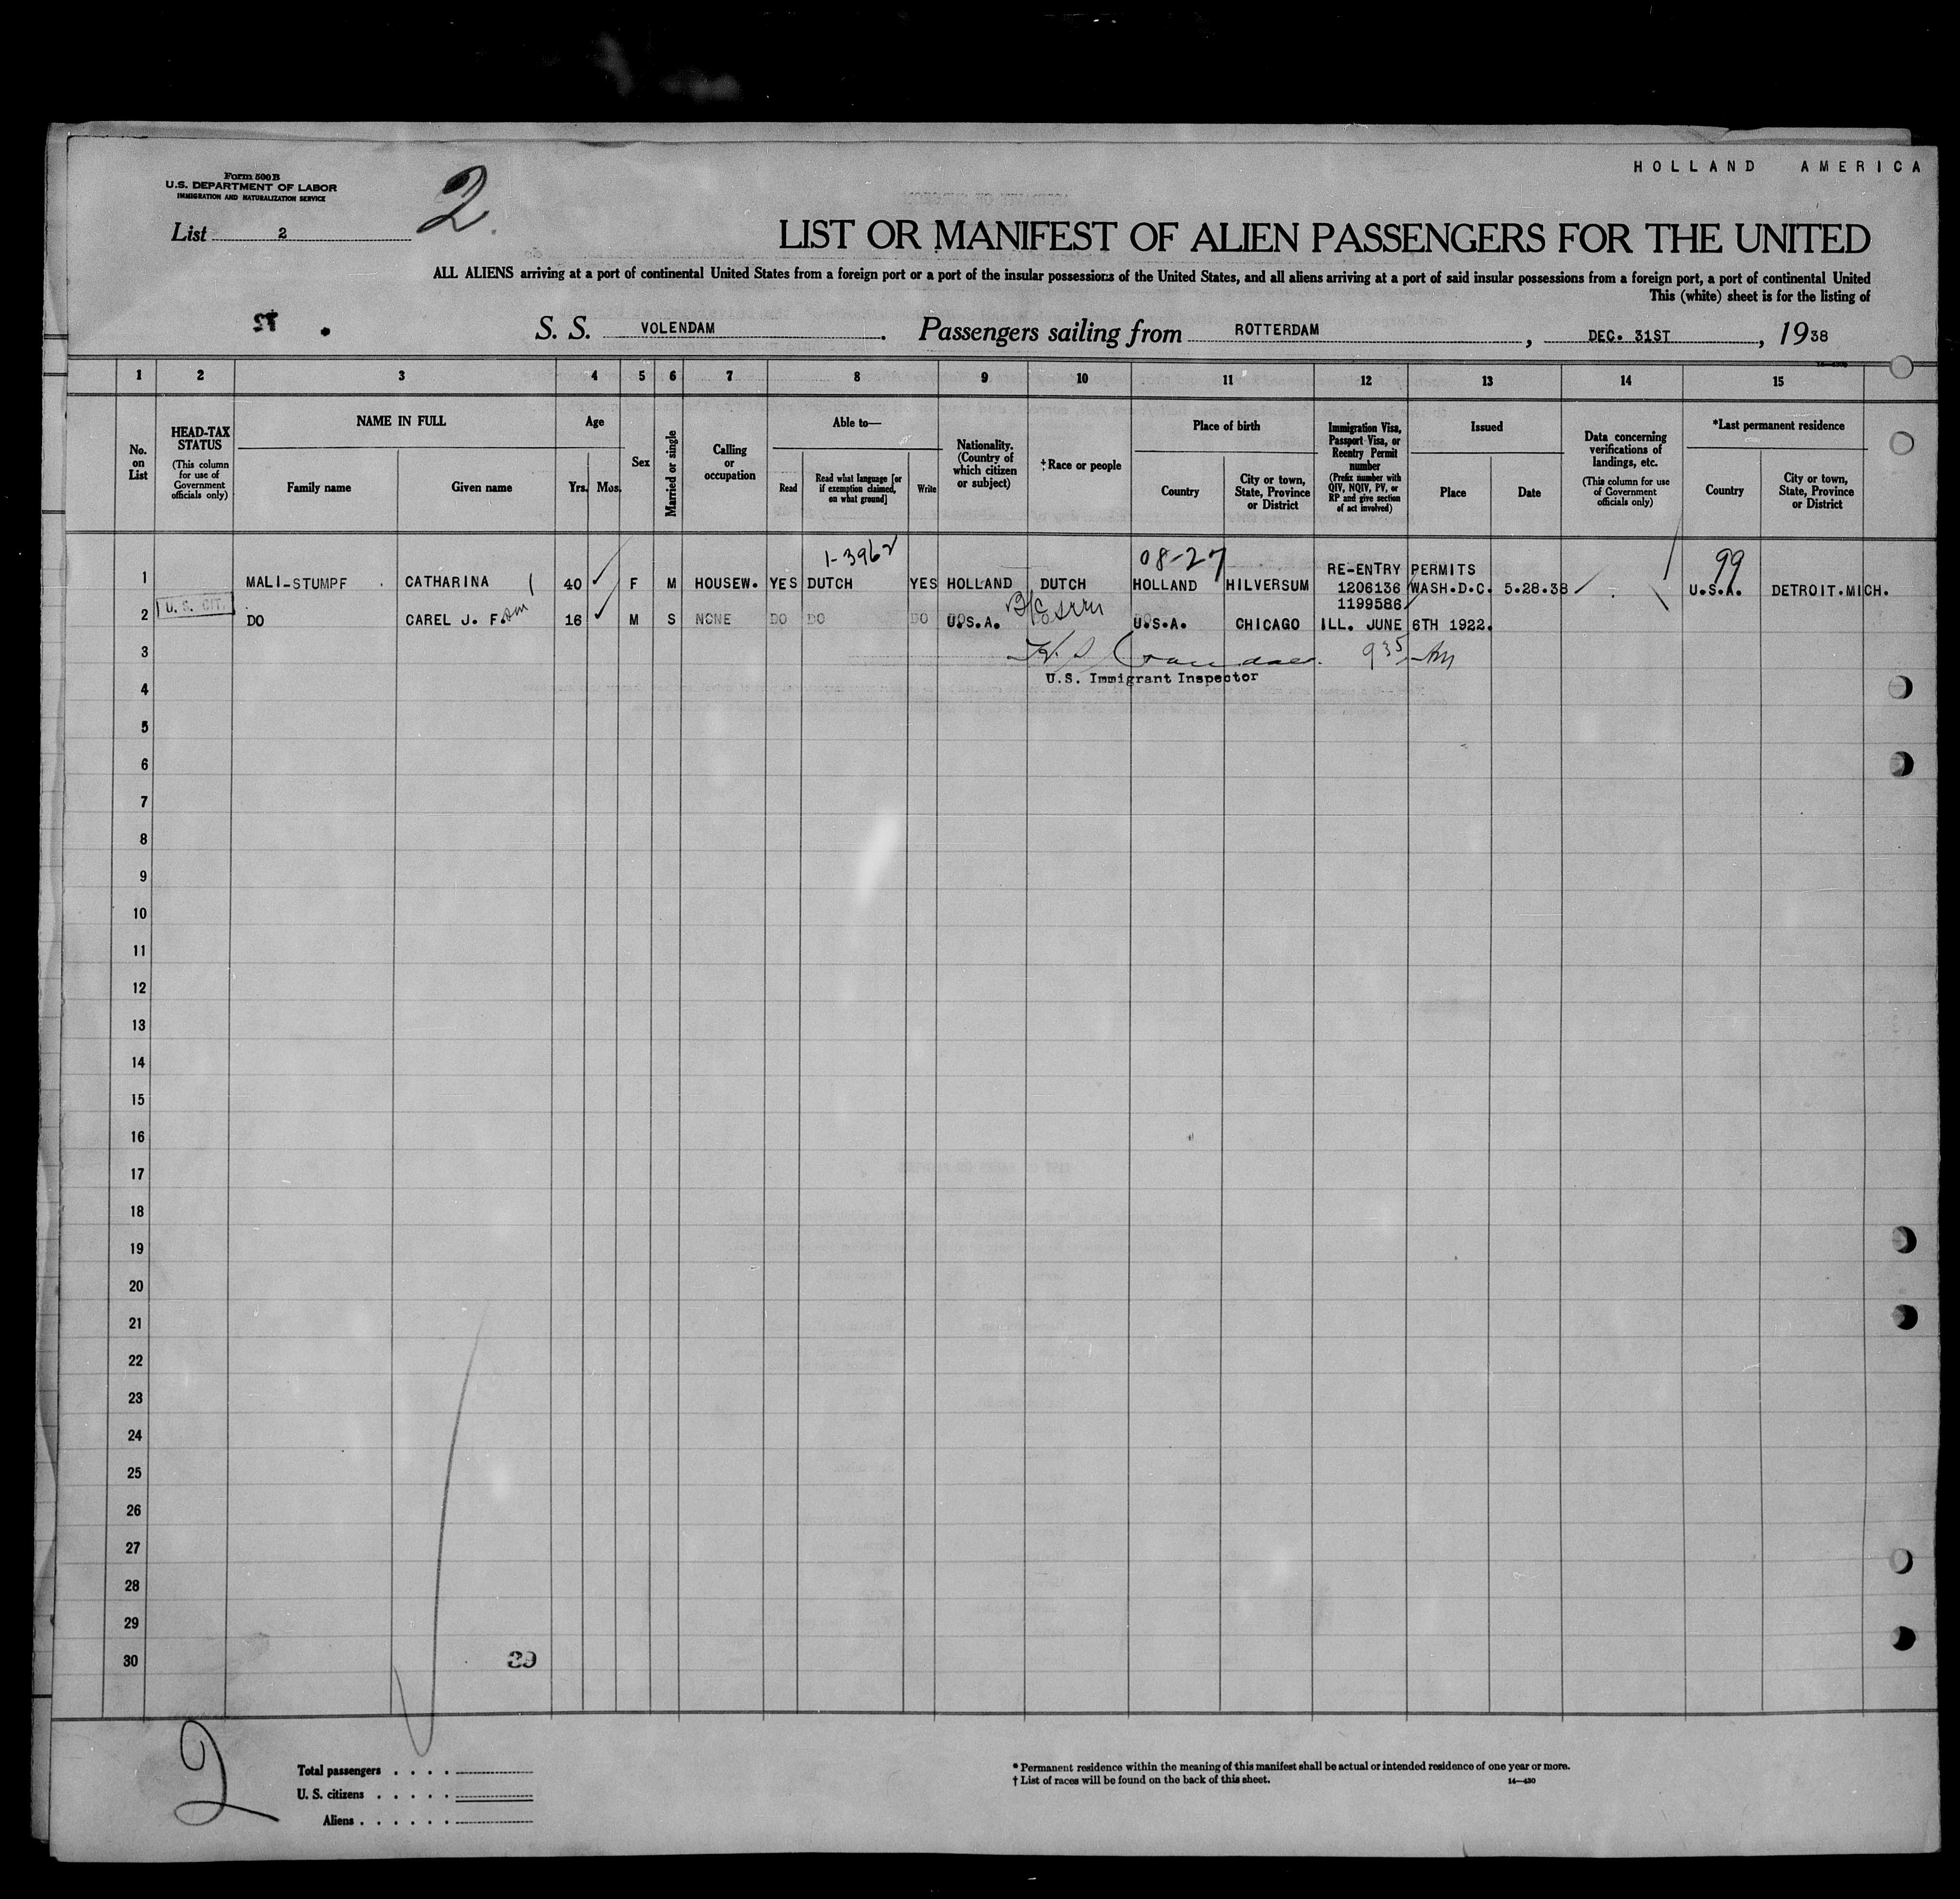 HOLLAND AMERICA
Form 500 B
U.S. DEPARTMENT OF LABOR
IMMIGRATION AND NATURALIZATION SERVICE
List 2
2
LIST OR MANIFEST OF ALIEN PASSENGERS FOR THE UNITED
ALL ALIENS arriving at a port of continental United States from a foreign port or a port of the insular possessions of the United States, and all aliens arriving at a port of said insular possessions from a foreign port, a port of continental United
This (white) sheet is for the listing of
S. S. VOLENDAM. Passengers sailing from ROTTERDAM, DEC. 31ST, 1938
1 2 3 4 5 6 7 8 9 10 11 12 13 14 15
No. on List
HEAD-TAX STATUS
(This column for use of Government officials only)
NAME IN FULL
Family name
Given name
Age
Yrs. Mos.
Sex
Married or single
Calling or occupation
Able to—
Read
Read what language [or if exemption claimed, on what ground]
Write
Nationality. (Country of which citizen or subject)
†Race or people
Place of birth
Country
City or town, State, Province or District
Immigration Visa, Passport Visa, or Reentry Permit number
(Prefix number with QIV, NQIV, PV, or RP and give section of act involved)
Issued
Place
Date
Data concerning verifications of landings, etc.
(This column for use of Government officials only)
*Last permanent residence
Country
City or town, State, Province or District
1-3962 08-27 99
RE-ENTRY PERMITS
1 MALI-STUMPF CATHARINA 40 F M HOUSEW. YES DUTCH YES HOLLAND DUTCH HOLLAND HILVERSUM 1206136 WASH.D.C. 5.28.38 U.S.A. DETROIT.MICH.
1199586
U. S. CIT.
2 DO CAREL J. F. 16 M S NONE DO DO DO U.S.A. U.S.A. CHICAGO ILL. JUNE 6TH 1922.
3 935 AM
U.S. Immigrant Inspector
4
5
6
7
8
9
10
11
12
13
14
15
16
17
18
19
20
21
22
23
24
25
26
27
28
29
30
39
2
Total passengers . . . .
U. S. citizens . . . . .
Aliens . . . . . .
* Permanent residence within the meaning of this manifest shall be actual or intended residence of one year or more.
† List of races will be found on the back of this sheet.
14—430